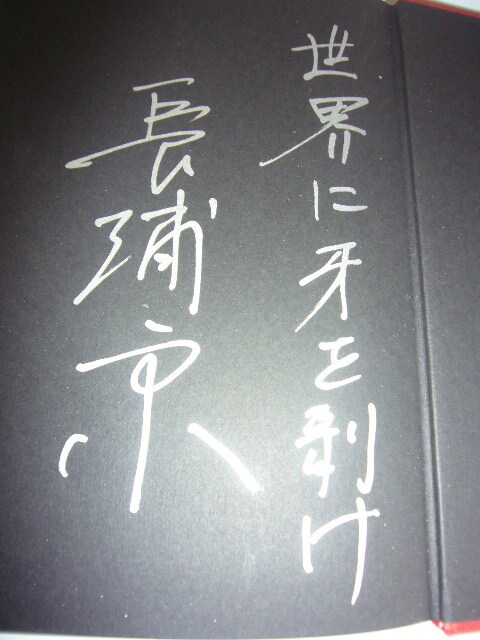 世界に牙を剥け
長浦京